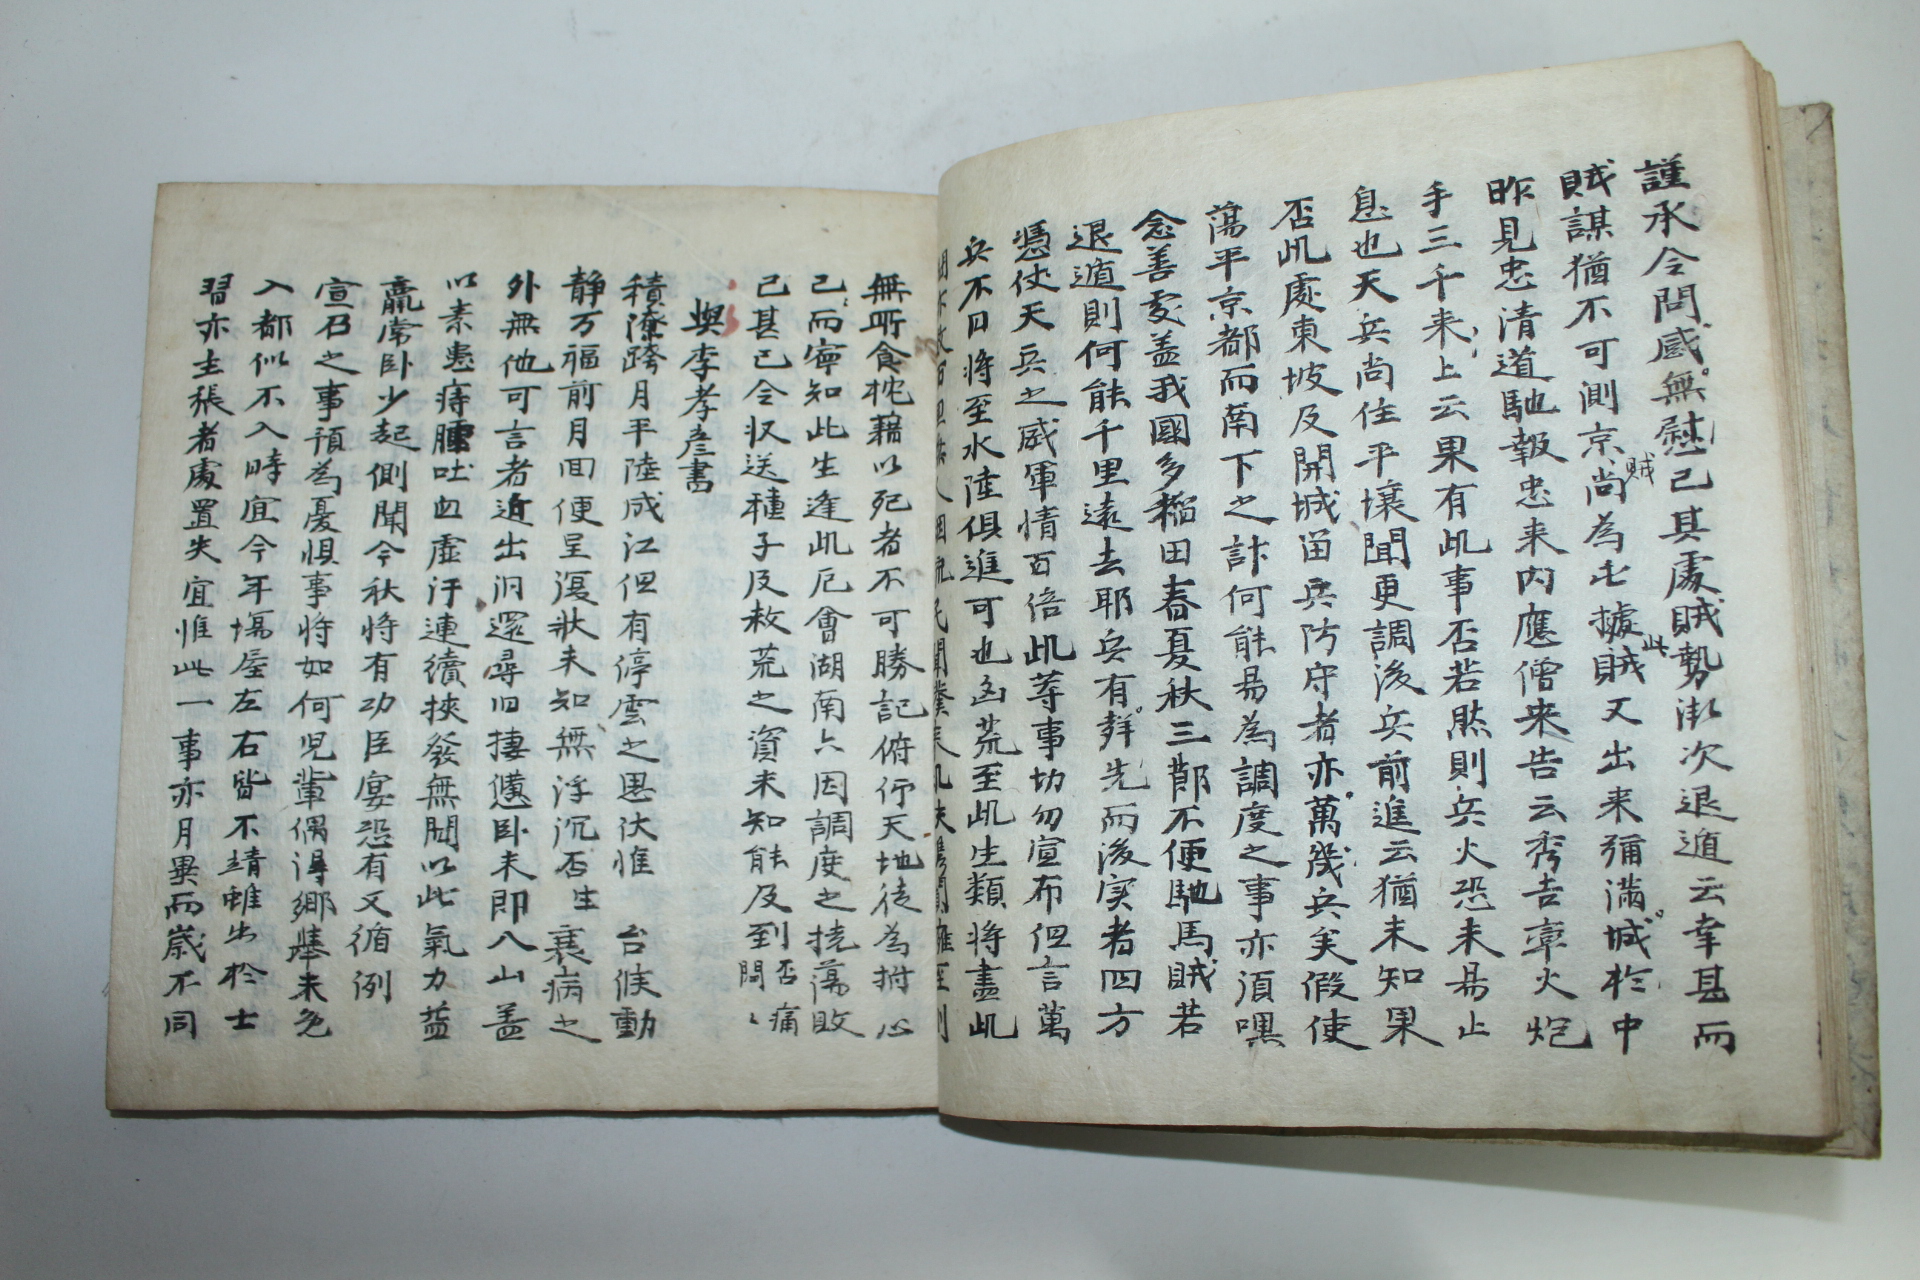 謹承令問感無慰已其處賊勢漸次退遁云幸甚而
賊謀猶不可測京賊尚為屯據此賊又出来彌満城於中
昨見忠清道馳報忠来内應僧来告云秀吉章火炮
手三千来上云果有此事否若然則兵火恐未易止
息也天兵尚住平壤聞更調後兵前進云猶未知果
否此處東坡及開城留兵防守者亦萬幾兵矣假使
蕩平京都而南下之計何能易為調度之事亦須嘿
念善處盖我國多稻田春夏秋三節不便馳馬賊若
退遁則何能千里遠去耶兵有先而後实者四方
憑仗天兵之威軍情百倍此等事切勿宣布但言萬
兵不日将至水陸俱進可也凶荒至此生類将盡此
無所食枕藉以死者不可勝記俯仰天地徒為拊心
已而寧知此生逢此厄會湖南亦因調度之撓蕩敗
已甚已令収送種子及救荒之資未知能及到否痛悶々
與李孝彦書
積潦跨月平陸成江但有停雲之思伏惟 台候動
静万福前月回便呈復状未知無浮沉否生 衰病之
外無他可言者近出泂還尋旧捿憊卧未即入山盖
以素患痔腫吐血虚汗連續挾發無間以此氣力益
羸常卧少起側聞今秋将有功臣宴恐有又循例
宣召之事預為憂惧事将如何児輩偶得鄉舉来免
入都似不入時宜今年場屋左右皆不靖雖出於士
習亦主張者處置失宜惟此一事亦月異而歲不同